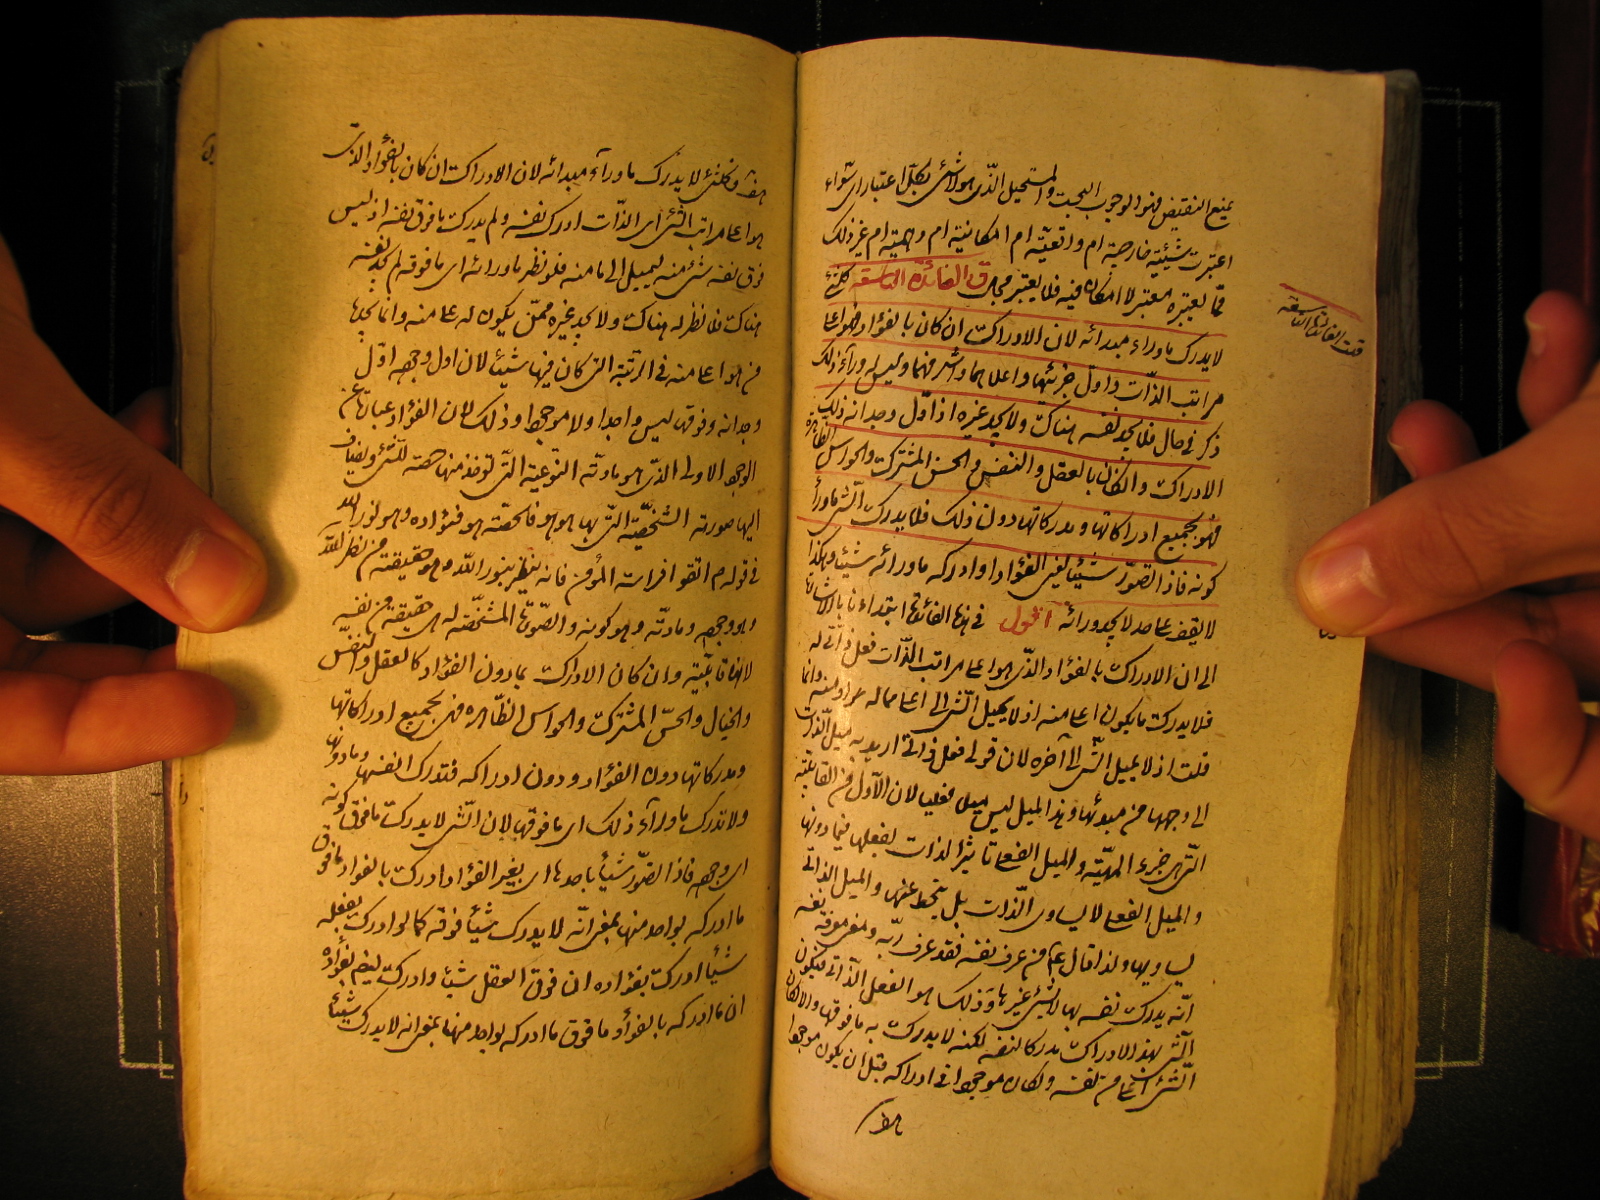 يمنع النقيض فهو الوجوب البحت والمستحيل الذي هو لا شئ بكل اعتبار اي سواء
اعتبرت شيئية خارجية ام واقعية ام امكانية ام وهمية ام غير ذلك
مما يعتبره معتبر لا امكان فيه فلا يعتبر الفائدة التاسعة كلشئ
قلت الفائدة التاسعة
لا يدرك ماوراء مبدائه لان الادراك ان كان بالفؤاد فهو اعلا
مراتب الذات واول جزئيها واعلاهما واشرفهما وليس له وراء ذلك
ذكر في حال فلا يجد نفسه هناك ولا يجد غيره اذ اول وجدانه ذلك
الادراك والكان بالعقل والنفس والحس المشترك والحواس الظاهرة
فهو بجميع ادراكاتها ومدركاتها دون ذلك فلا يدرك الشئ ماوراء
كونه فاذا تصور شيئا بغير الفؤاد او ادركه ماورائه شيئا وهكذا
لا يقف على حد لا يجد ورائه اقول في هذه الفائدة ابتداءنا بالاشارة
الى ان الادراك بالفؤاد الذي هو اعلا مراتب الذات فعل ذاتي له
فلا يدرك ما يكون اعلا منه اذ لا يميل الشئ الى اعلا مما له منه وانما
قلت اذ لا يميل الشئ الى آخره لان قولي فعل ذاتي اريد به ميل الذات
الى وجهها من مبدئها وهذا الميل ليس ميلا فعليا لان الاول من القابلية
التي هي جزء المهية والميل الفعلي تاثير الذات بفعلها فيما دونها
والميل الفعلي لا يساوي الذات بل ينحط عنها والميل الذاتي
يساويها ولذا قال من عرف نفسه فقد عرف ربه ومعنى معرفة نفسه
انه يدرك نفسه بها لا بشئ غيرها وذلك هو الفعل الذاتي فيكون
الشئ بهذا الادراك مدركا لنفسه لكنه لا يدرك به ما فوقها والا لكان
الشئ اعلا من نفسه ولكان موجودا في ادراكه قبل ان يكون موجودا
هف وكلشئ لا يدرك ماوراء مبدائه لان الادراك ان كان بالفؤاد الذي
هو اعلا مراتب الشئ اي الذات ادرك نفسه ولم يدرك ما فوق نفسه اذ ليس
فوق نفسه شئ منه ليميل الى ما منه فلو نظر ماورائه اي ما فوقه لم يجد نفسه
هناك فلا نظر له هناك ولا يجد غيره ممن يكون له اعلا منه وانما يجد
من هو اعلا منه في الرتبة التي كان فيها شيئا لان اول وجهه اول
وجدانه وفوقها ليس واجدا ولا موجودا وذلك لان الفؤاد عبارة عن
الوجه الاولى الذي هو مادته النوعية التي تؤخذ منها حصة للشئ ويضاف
اليها صورته الشخصية التي بها هو هو فالحصة هو فؤاده وهو نور الله
في قوله اتقوا فراسة المؤمن فانه ينظر بنور الله وهو حقيقته من
وهو وجهه ومادته وهو كونه والصورة المشخصة له هي حقيقته من نفسه
لانها قابليته وان كان الادراك بما دون الفؤاد كالعقل والنفس
والخيال والحس المشترك والحواس الظاهرة فهي بجميع ادراكاتها
ومدركاتها دون الفؤاد ودون ادراكه فتدرك انفسها وما دونها
ولا تدرك ماوراء ذلك اي ما فوقها لان الشئ لا يدرك ما فوق كونه
اي وجهه فاذا تصور شيئا باحدها اي بغير الفؤاد ادرك بالفؤاد ما فوق
ما ادركه بواحد منها بمعنى انه لا يدرك شيئا فوقه كما لو ادرك بعقله
شيئا ادرك بفؤاده ان فوق العقل شيئا وادرك بفؤاده
ان ما ادركه بالفؤاد ما فوق ما ادركه بواحد منها بمعنى انه لا يدرك شيئا